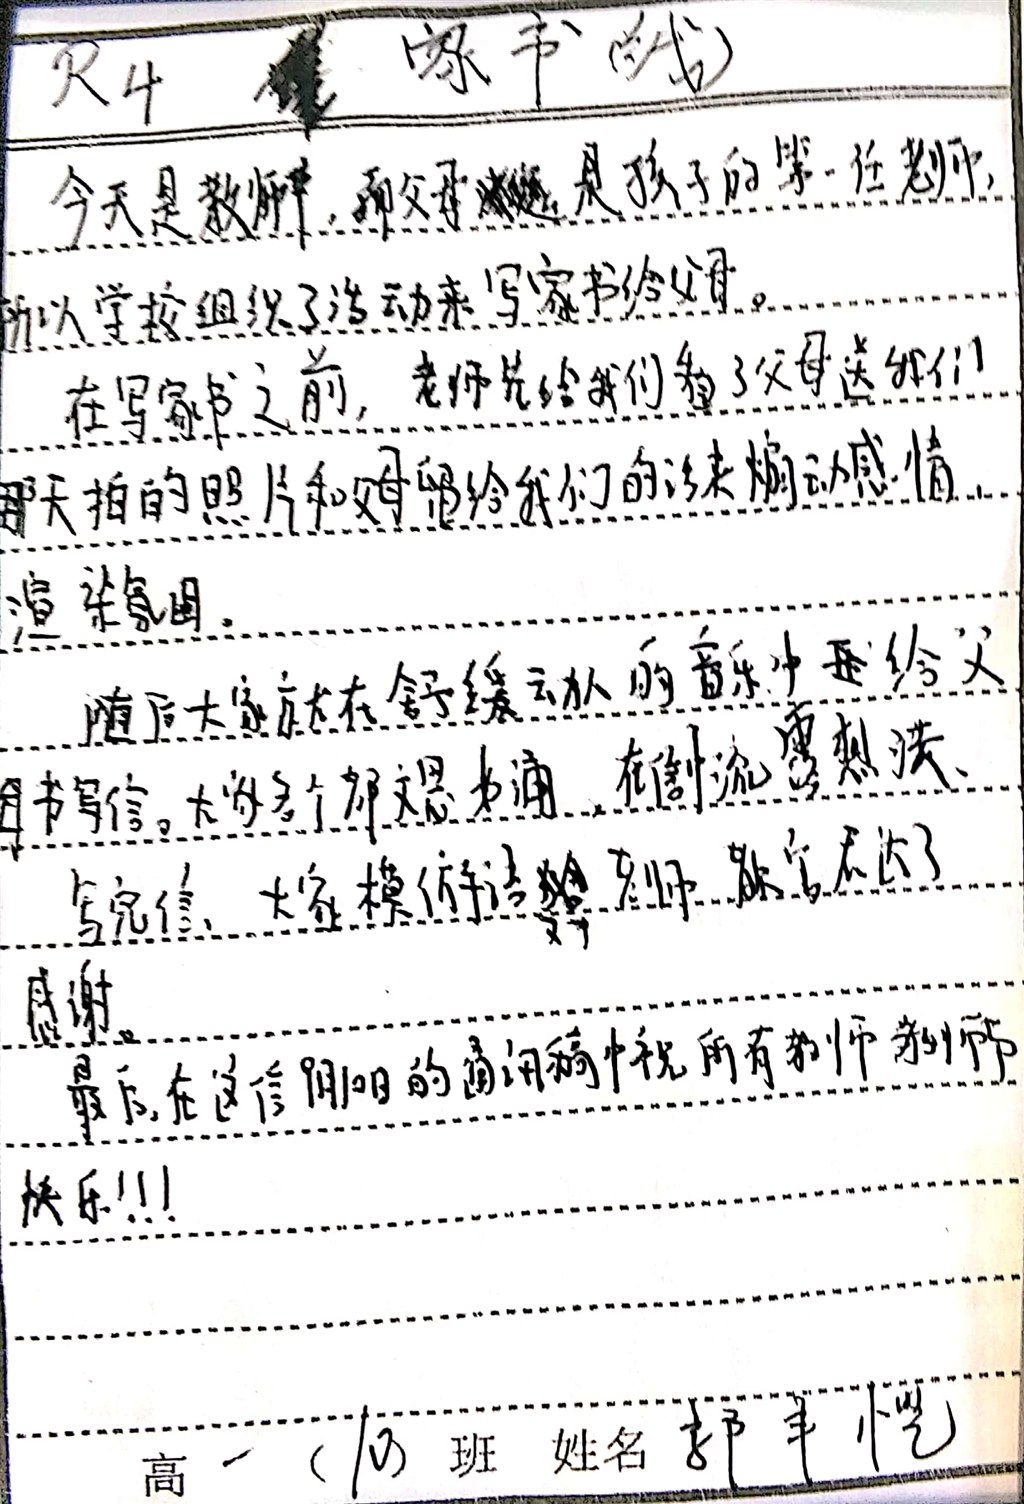 R4 家书(线)
今天是教师节,而父母是孩子的第一任老师,
所以学校组织了活动来写家书给父母。
在写家书之前,老师先给我们看了父母送我们
那天拍的照片和父母留给我们的话来煽动感情,
渲染氛围。
随后大家就在舒缓动人的音乐中给父
母书写信。大家各个都文思如涌,在信中流露想法、
写完信、大家模仿手语老师
感谢。
最后,在这信的通讯稿中祝所有教师教师节
快乐!!!
高一(10)班 姓名 郭羊恺